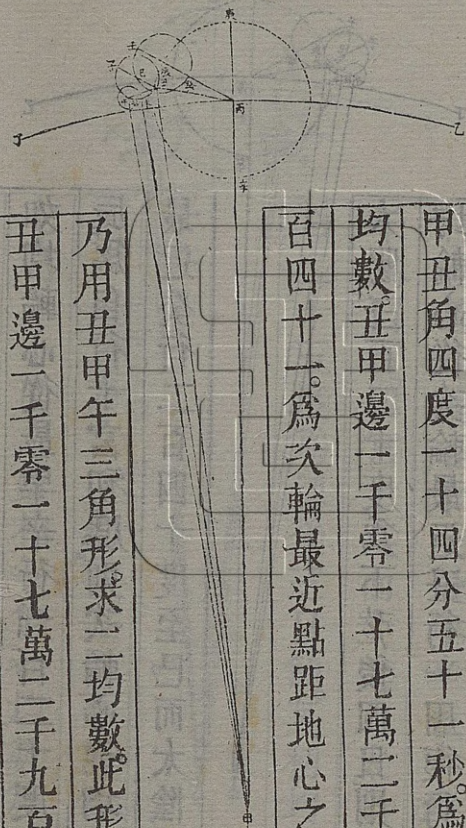 甲丑角四度一十四分五十一秒。爲
均數。丑甲邊一千零一十七萬二千
百四十一。爲次輪最近點距地心之
乃用丑甲午三角形。求二均數。此形
丑甲邊一千零一十七萬二千九百
丙
乙
丁
甲
午
壬
己
丑